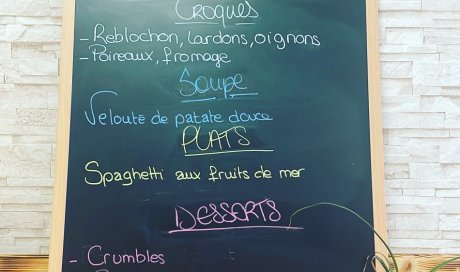 Croques
- Reblochon, lardons, oignons
- Poireaux, fromage
Soupe
Velouté de patate douce
PLATS
Spaghetti aux fruits de mer
DESSERTS
- Crumbles